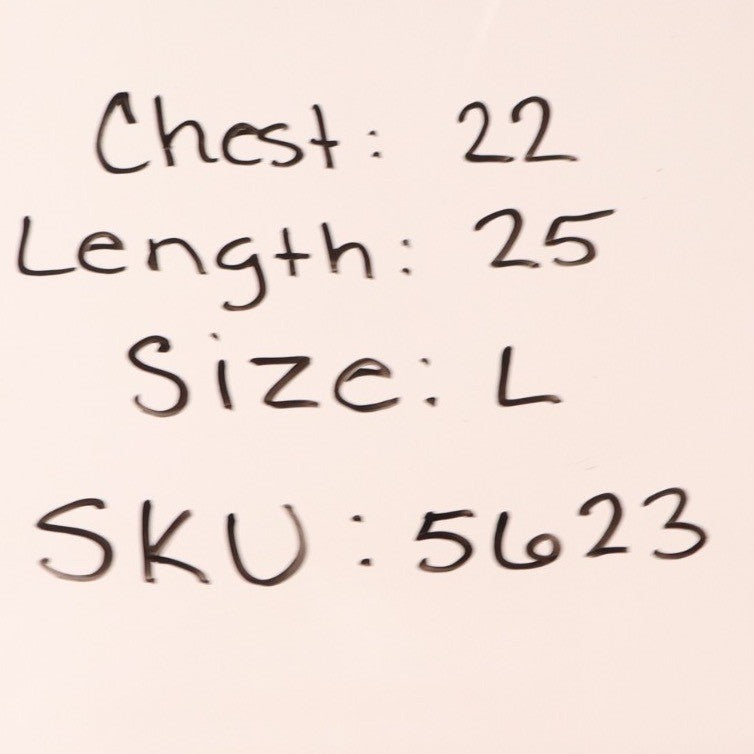 Chest: 22
Length: 25
Size: L
SKU: 5623